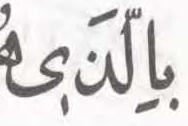 بِالَّذِى